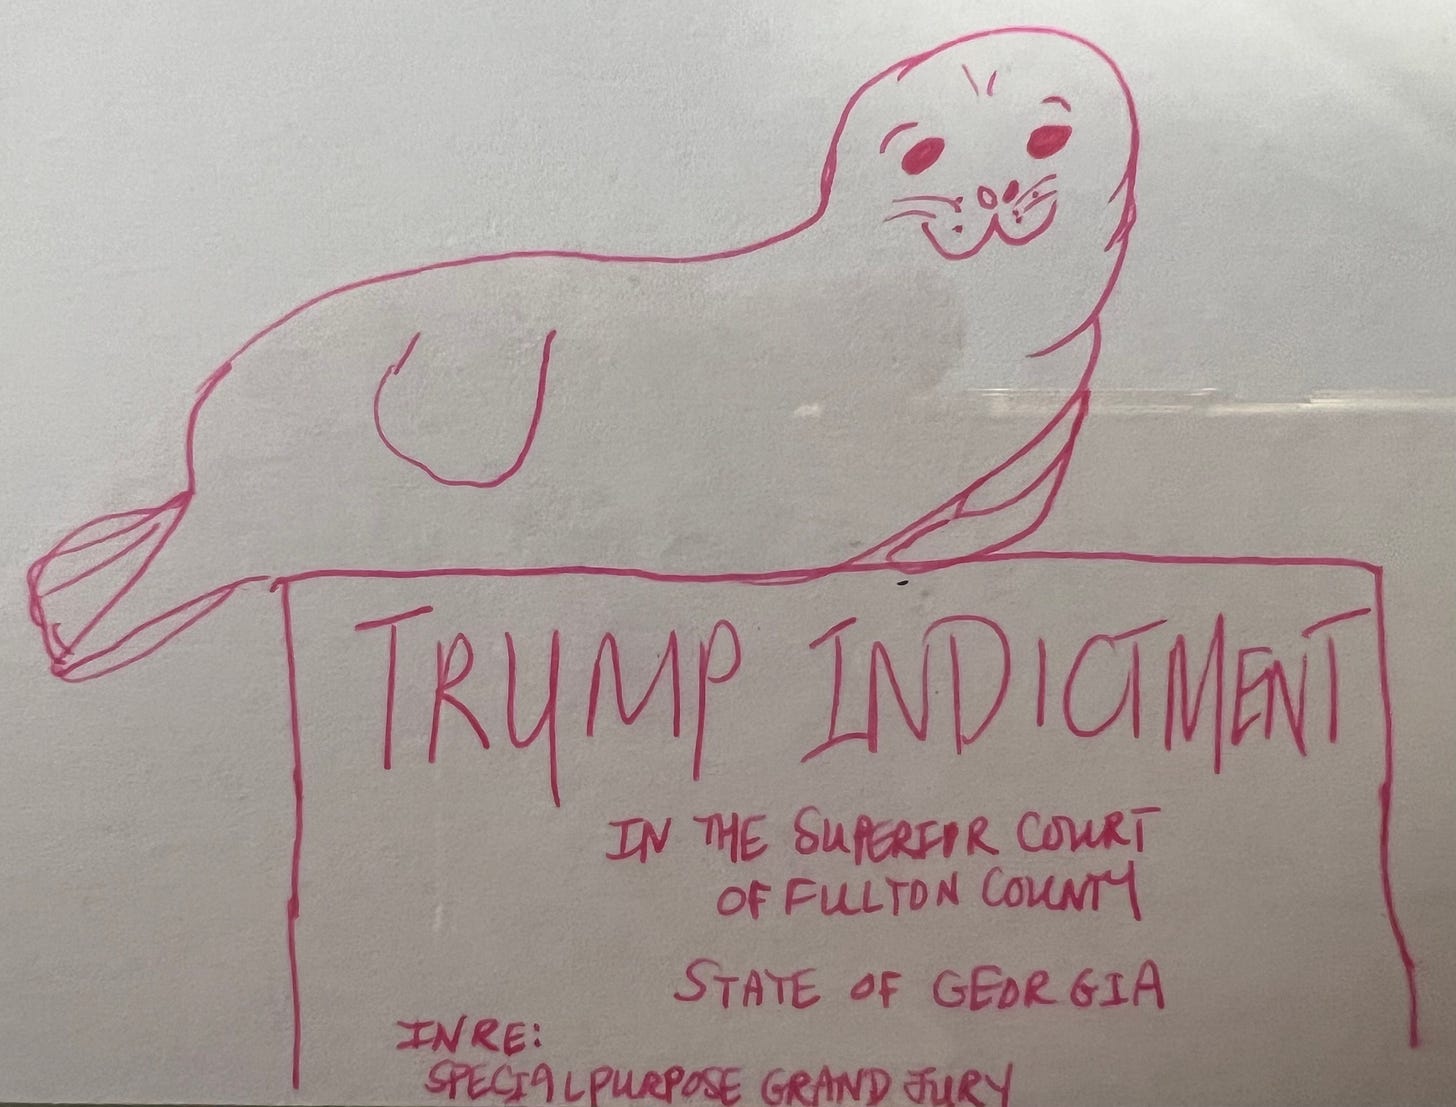 TRUMP INDICTMENT
IN THE SUPERIOR COURT
OF FULTON COUNTY
STATE OF GEORGIA
IN RE:
SPECIAL PURPOSE GRAND JURY